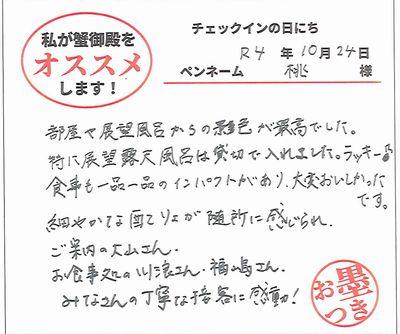 私が蟹御殿を
オススメ
します！
チェックインの日にち
R4 年 10月 24日
ペンネーム 桃 様
部屋や展望風呂からの景色が最高でした。
特に展望露天風呂は貸切で入れました。ラッキー♪
食事も一品一品のインパクトがあり、大変おいしかった
です。
細やかな配りょが随所に感じられ、
ご案内の大山さん・
お食事処の川浪さん・福嶋さん・
みなさんの丁寧な接客に感動！
お墨
つき